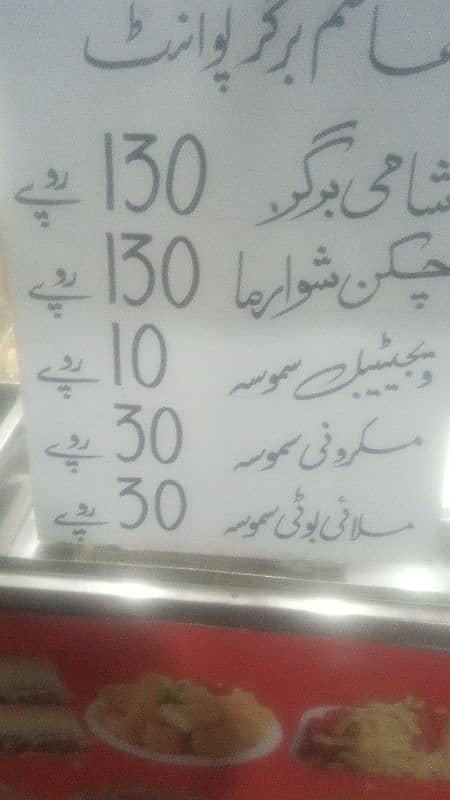 عاصم برگر پوائنٹ
شامی برگر 130 روپے
چکن شوارما 130 روپے
ویجیٹیبل سموسہ 10 روپے
مکرونی سموسہ 30 روپے
ملائی بوٹی سموسہ 30 روپے